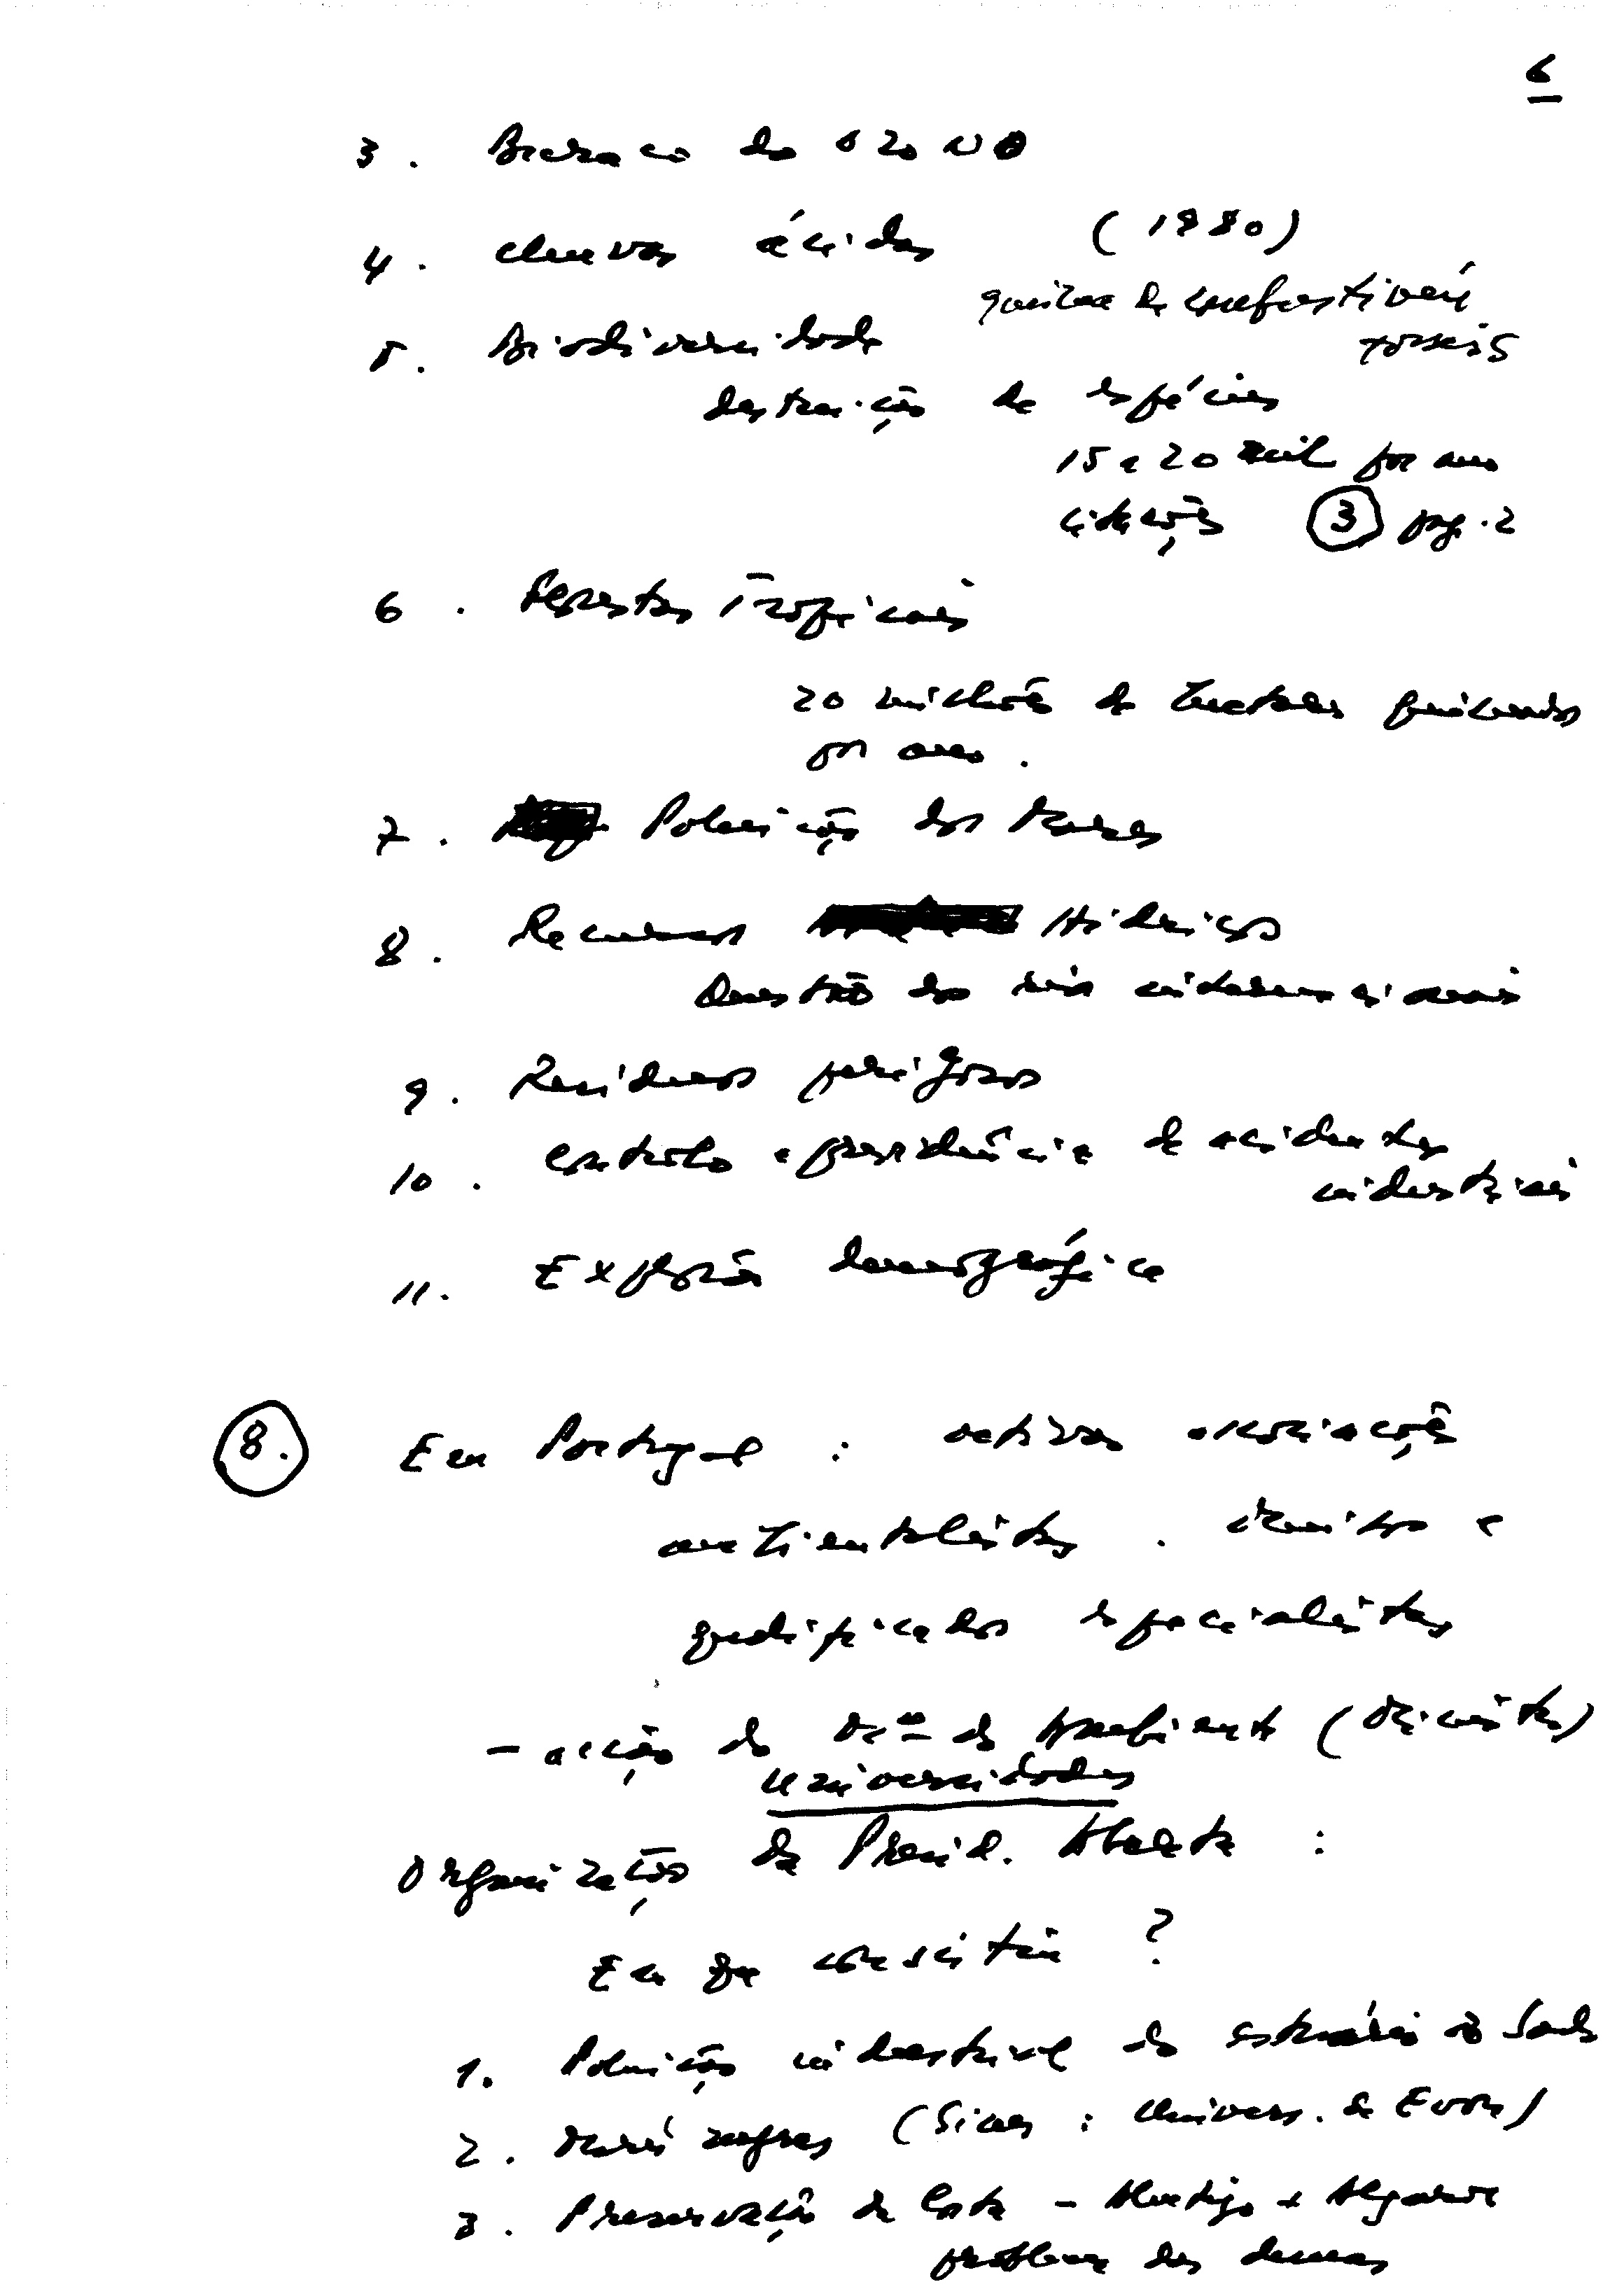 6
3. Buraco do ozono
4. chuvas ácidas (1980)
queima de combustíveis
fósseis
5. Biodiversidade
destruição de espécies
15 a 20 mil por ano
citações 3 pag. 2
6. Florestas Tropicais
20 milhões de hectares queimados
por ano.
7. Poluição dos Mares
8. Recursos Hídricos
Questão dos rios internacionais
9. Resíduos perigosos
10. Controlo e previdência de acidentes
industriais
11. Explosão demográfica
8. Em Portugal: activas associações
ambientalistas. cientistas e
qualificados especialistas
- acção do Mº do Ambiente (Ministra)
Universidades
Organização da Presid. Aberta:
Em que consistiu?
1. Poluição industrial do estuário do Sado
2. Marés negras (Sines: Univers. de Evora)
3. Preservação da Costa - Alentejo e Algarve
problema das dunas